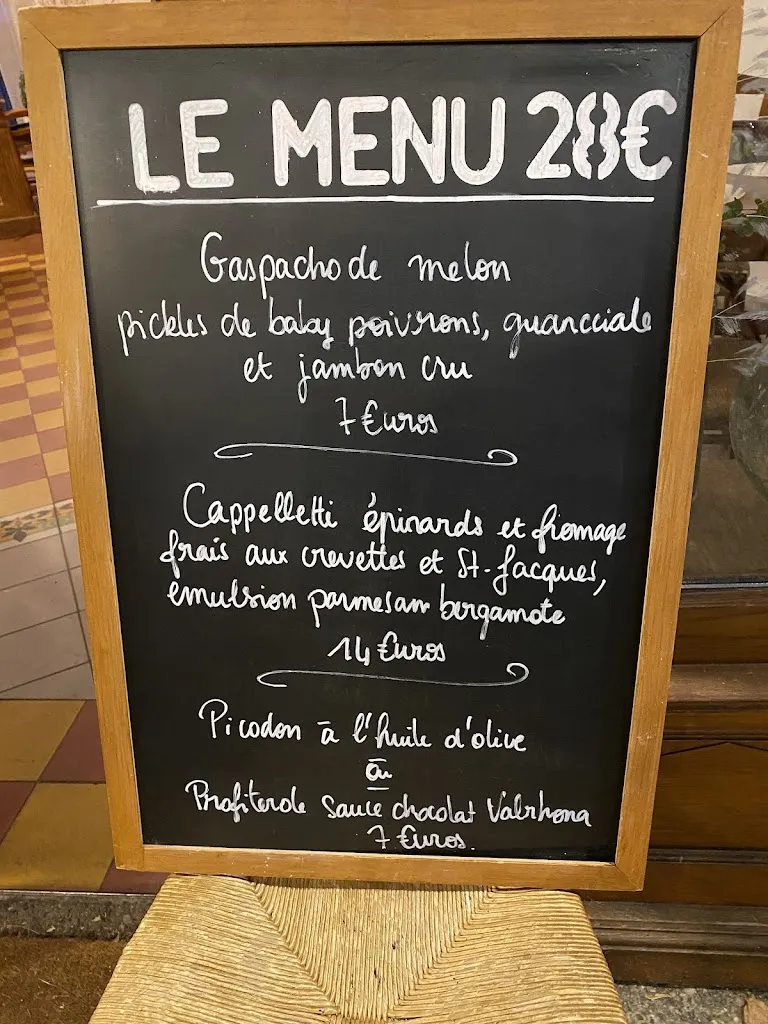 LE MENU 28€
Gaspacho de melon
pickles de baby poivrons, guancciale
et jambon cru
7 Euros
Cappelletti épinards et fromage
frais aux crevettes et St-Jacques,
émulsion parmesan bergamote
14 Euros
Picodon à l'huile d'olive
ou
Profiterole Sauce chocolat Valrhona
7 Euros.